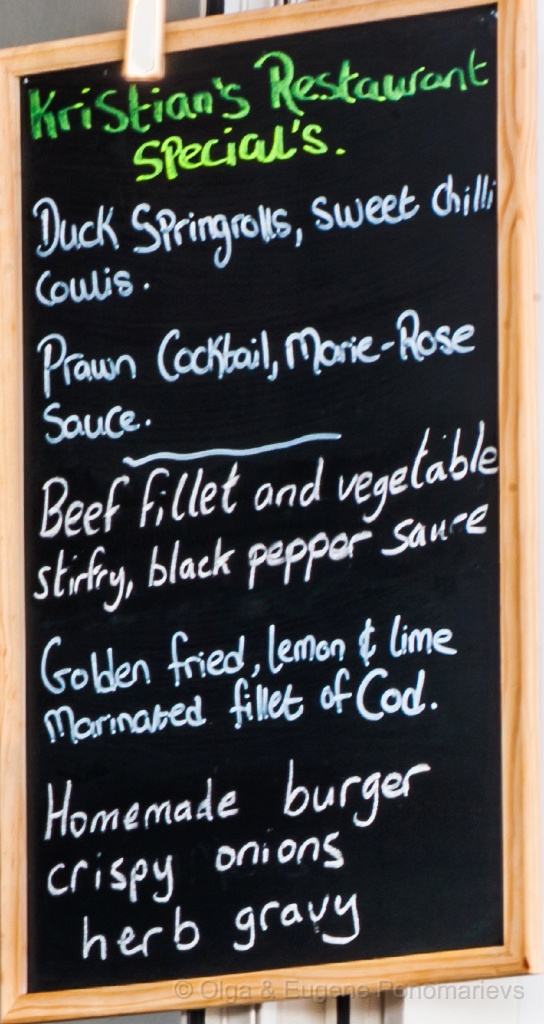 Kristian's Restaurant
Special's.
Duck Springrolls, sweet chilli
Coulis.
Prawn Cocktail, Marie-Rose
Sauce.
Beef fillet and vegetable
stirfry, black pepper sauce
Golden fried, lemon & lime
Marinated fillet of Cod.
Homemade burger
crispy onions
herb gravy
© Olga & Eugene Ponomarievs